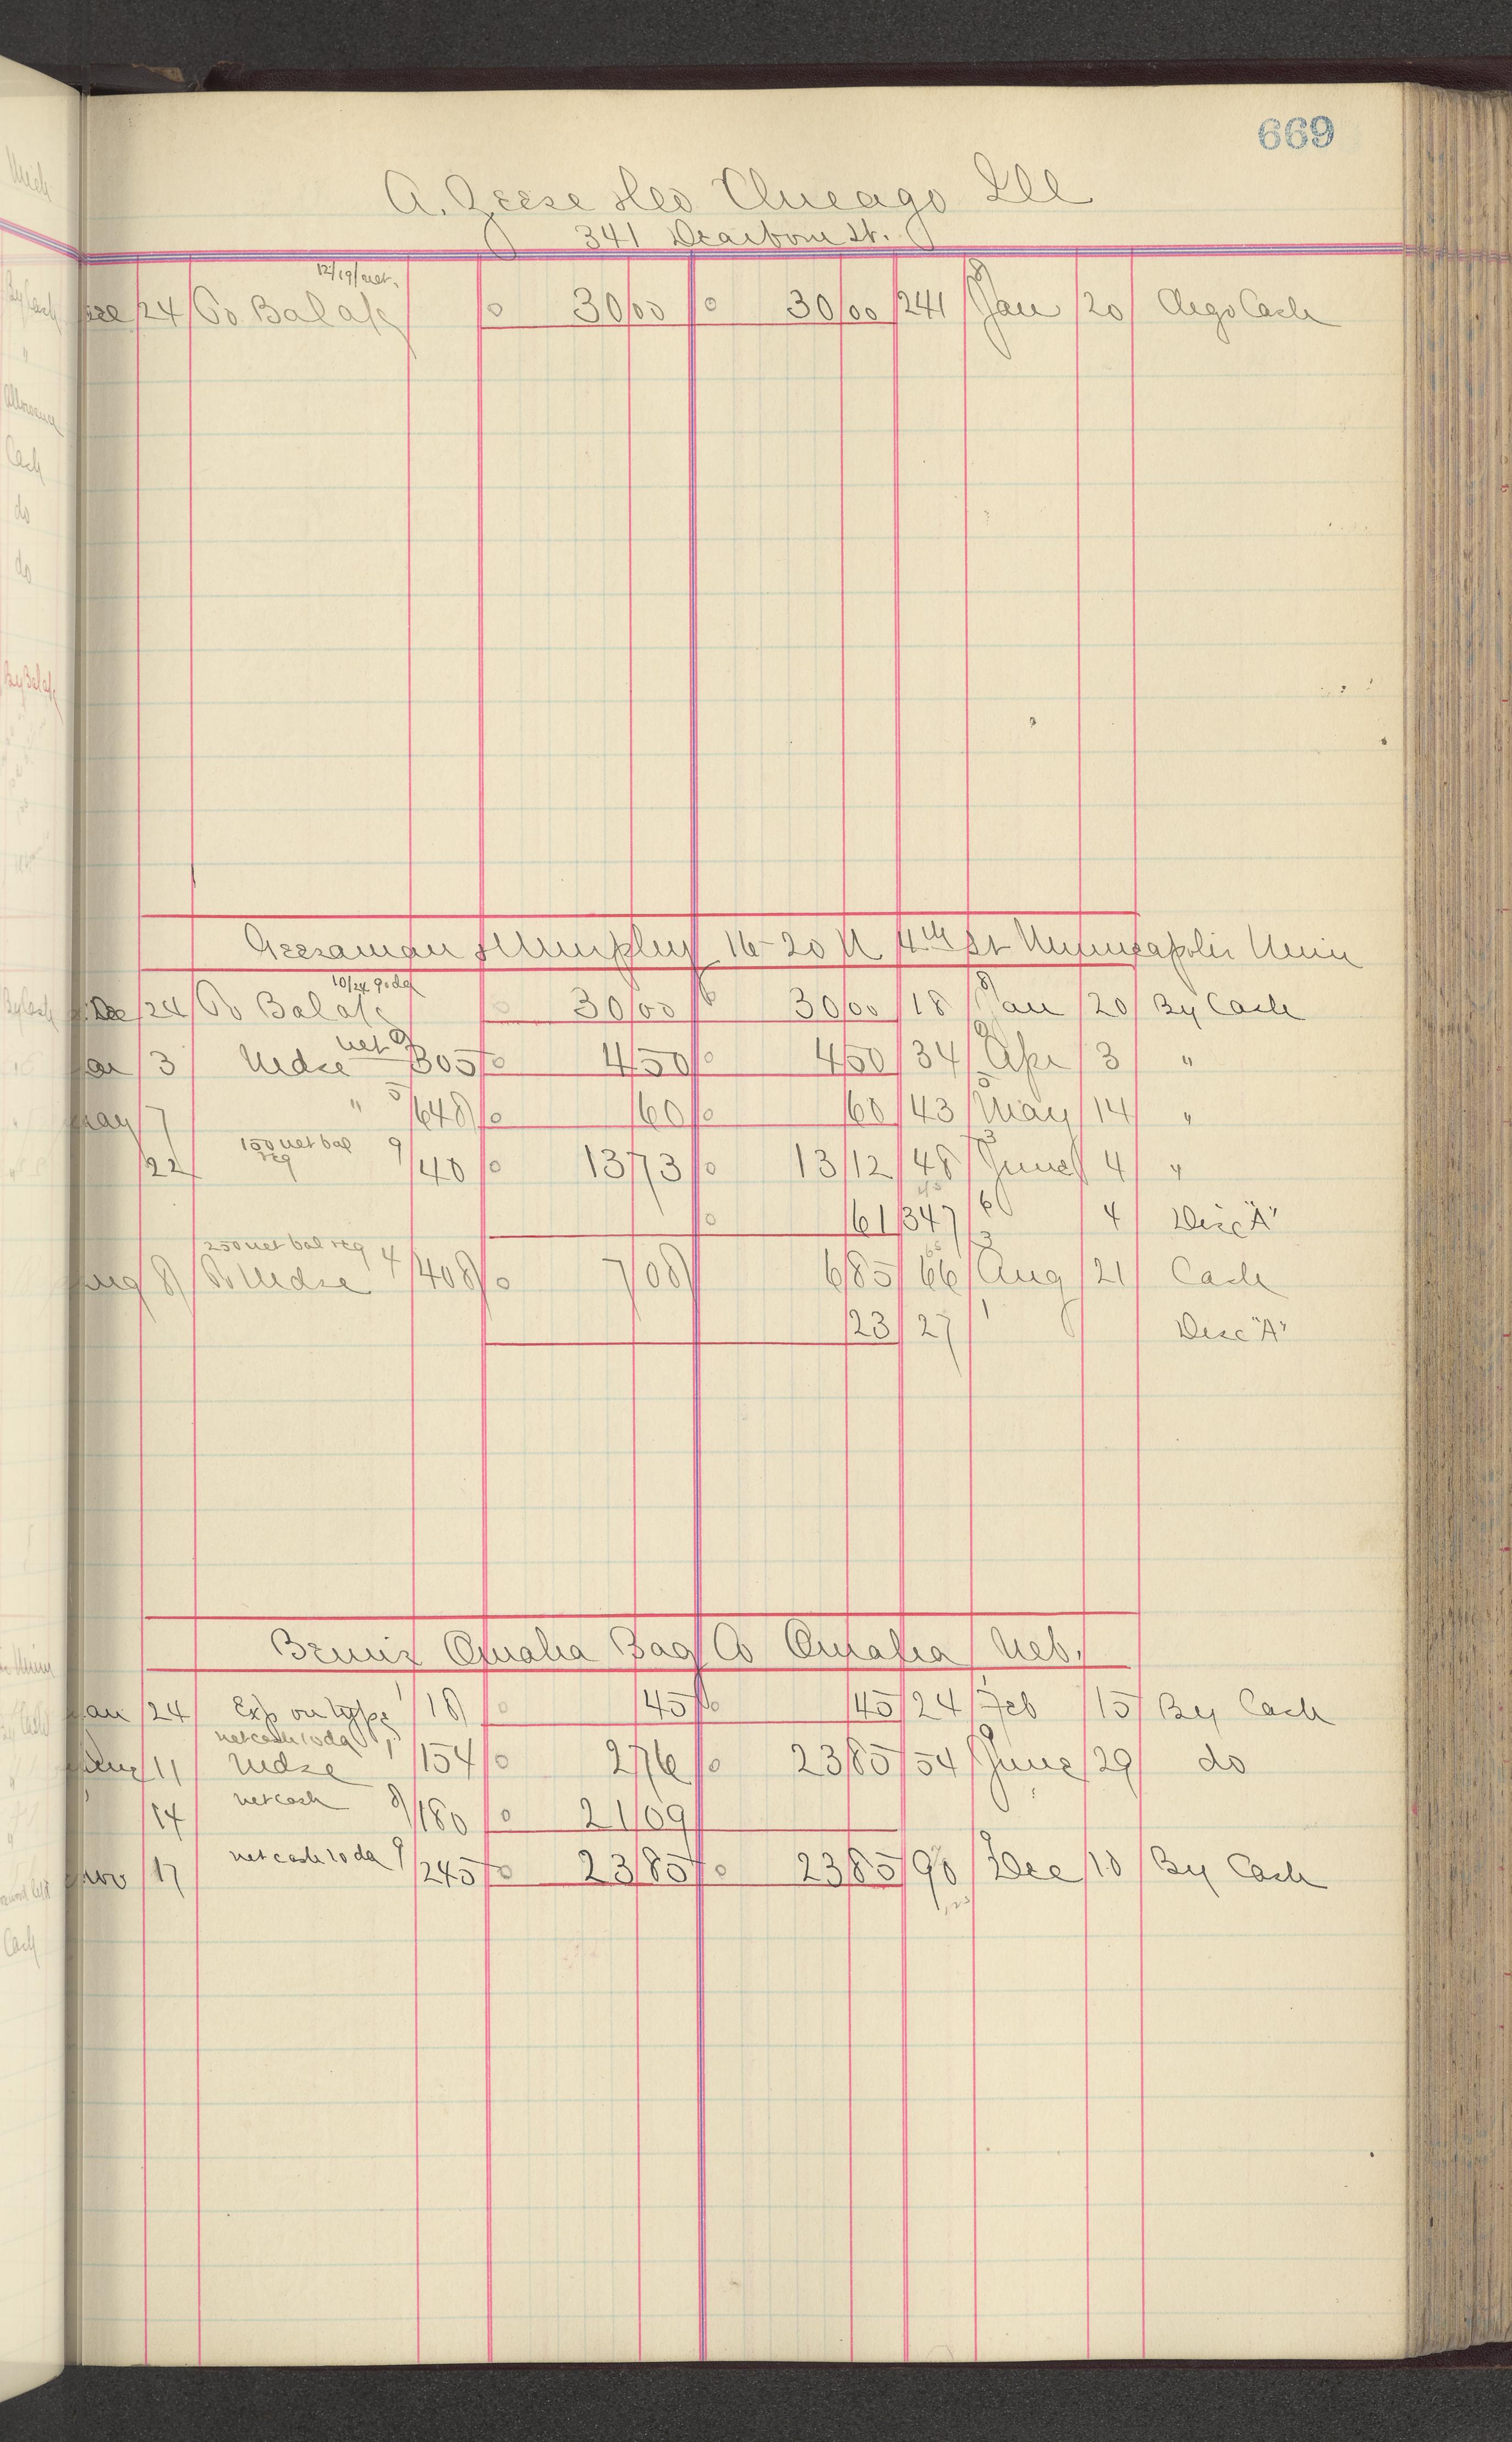 669
A. Chicago Ill
341 Dearborn St.
12/19/net.
Dec 24 To Balance 30 00 30 00 241 Jan 20 Cash
& 16-20 N 4th St Minneapolis Minn
10/24 90 da
Dec 24 To Balance 30 00 30 00 18 Jan 20 By Cash
net
Jan 3 Mdse 9/305 4 50 4 50 34 Apr 3 "
May 7 " 5/648 60 60 43 May 14 "
150 net bal
reg
22 9/40 13 73 13 12 48 June 4 "
61 347 6 4 Disc "A"
250 net bal reg
Aug 8 To Mdse 4/408 7 08 6 85 66 Aug 21 Cash
23 27 Disc "A"
Bemis Omaha Bag Co Omaha Neb.
Jan 24 Exp on type 1/18 45 45 24 Feb 15 By Cash
net cash 10 da
11 Mdse 1/154 2 76 23 85 54 June 29 do
14 net cash 8/180 21 09
Nov 17 net cash 10 da 9/245 23 85 23 85 90 Dec 10 By Cash